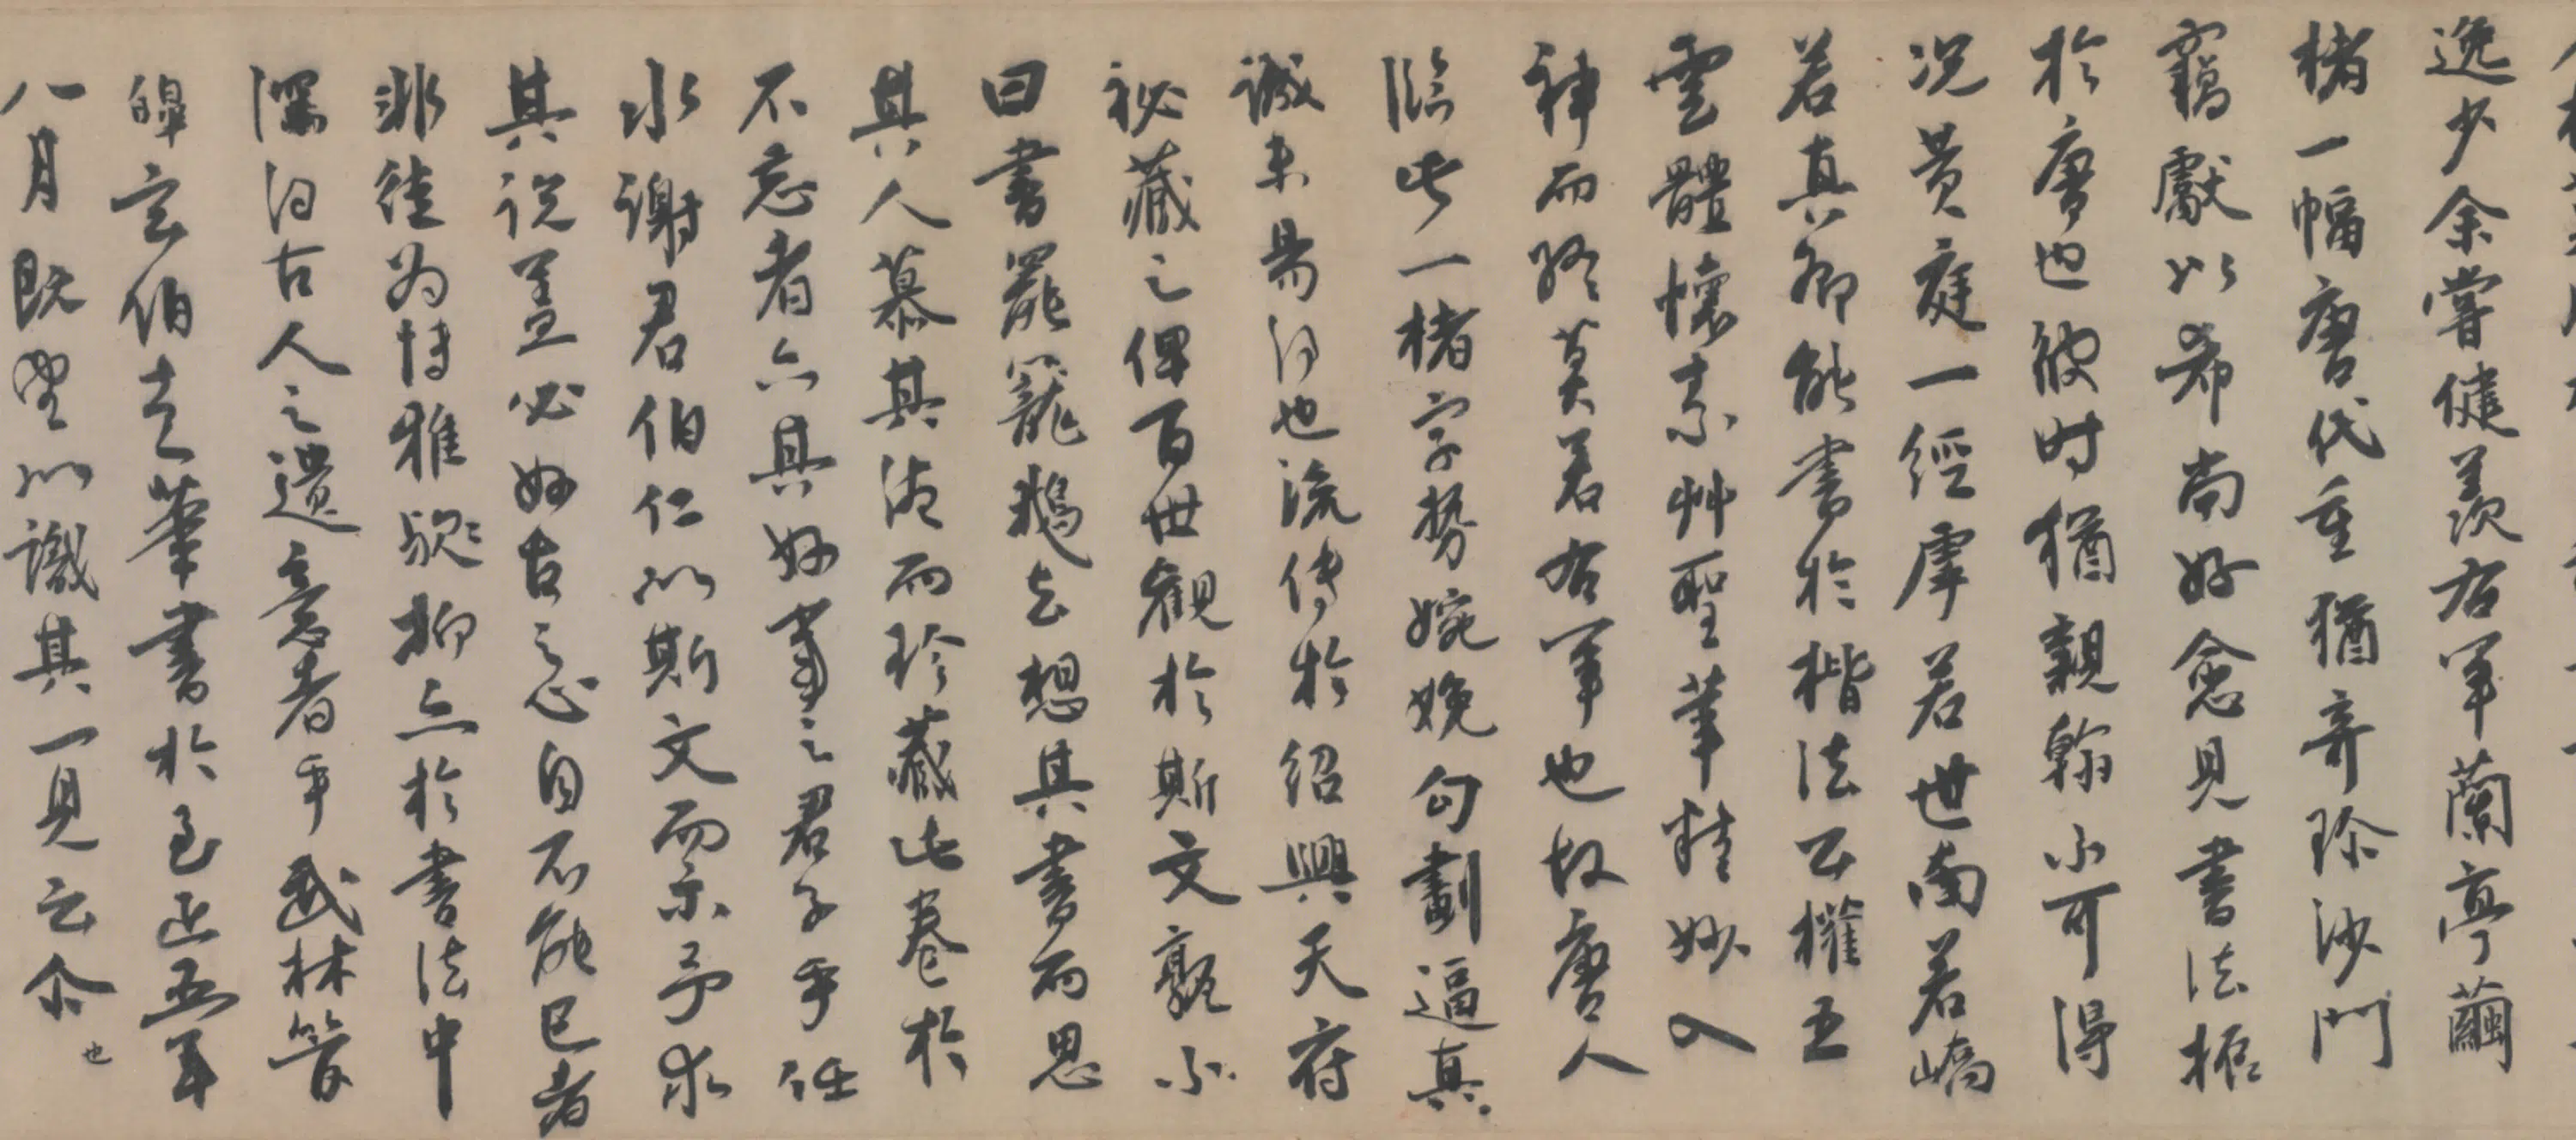 逸少余嘗健羨右軍蘭亭繭
楮一幅唐代重猶奇珍沙門
竊獻以希尚好愈見書法振
於唐也彼时猶親翰不可得
况黄庭一經虖若世南若嶠
若真卿能書於楷法公權五
雲體懷素艸聖筆精妙入
神而終莫若右軍也故唐人
臨此一楮字勢婉娩勾劃逼真
誠未易得也流传於紹興天府
祕藏之俾百世觀於斯文觀不
曰書罷籠鵝去想其書而思
其人慕其德而珍藏此卷於
不忘者亦其好事之君子乎任
水謝君伯仁以斯文而示予求
其説盖必好古之心自不能已者
非徒为博雅歟抑亦於書法中
深得古人之遺意者乎武林管
皞玄伯走筆書於至正五年
八月既望以識其一見云尒也